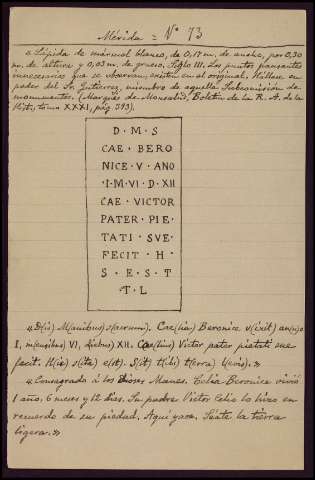 Mérida = Nº 73
« Lápida de mármol blanco, de 0,17 m. de ancho, por 0,30
m. de altura y 0,03 m. de grueso. Siglo III. Los puntos
innecesarios que se observan, existen en el original. Hállase en
poder del Sr. Gutierrez, miembro de aquella Subcomisión de
monumentos. (Marqués de Monsalud, Boletin de la R. A. de la
Hist., tomo XXXI, pág 393).
D · M · S
CAE · BERO
NICE · V · ANO
· I · M · VI · D · XII
CAE · VICTOR
PATER · PIE ·
TATI · SVE ·
FECIT · H ·
S · E · S · T
· T · L
« D(is) M(anibus) s(acrum). Cae(lia) Beronice v(ixit) an(n)o
I, m(ensibus) VI, d(iebus) XII. Cae(lius) Victor pater pietati sue
fecit. H(ic) s(ita) e(st). S(it) t(ibi) t(erra) l(evis). »
« Consagrado á los Dioses Manes. Celia Beronice vivió
1 año, 6 meses y 12 dias. Su padre Victor Celio lo hizo en
recuerdo de su piedad. Aquí yace. Séate la tierra
ligera. »